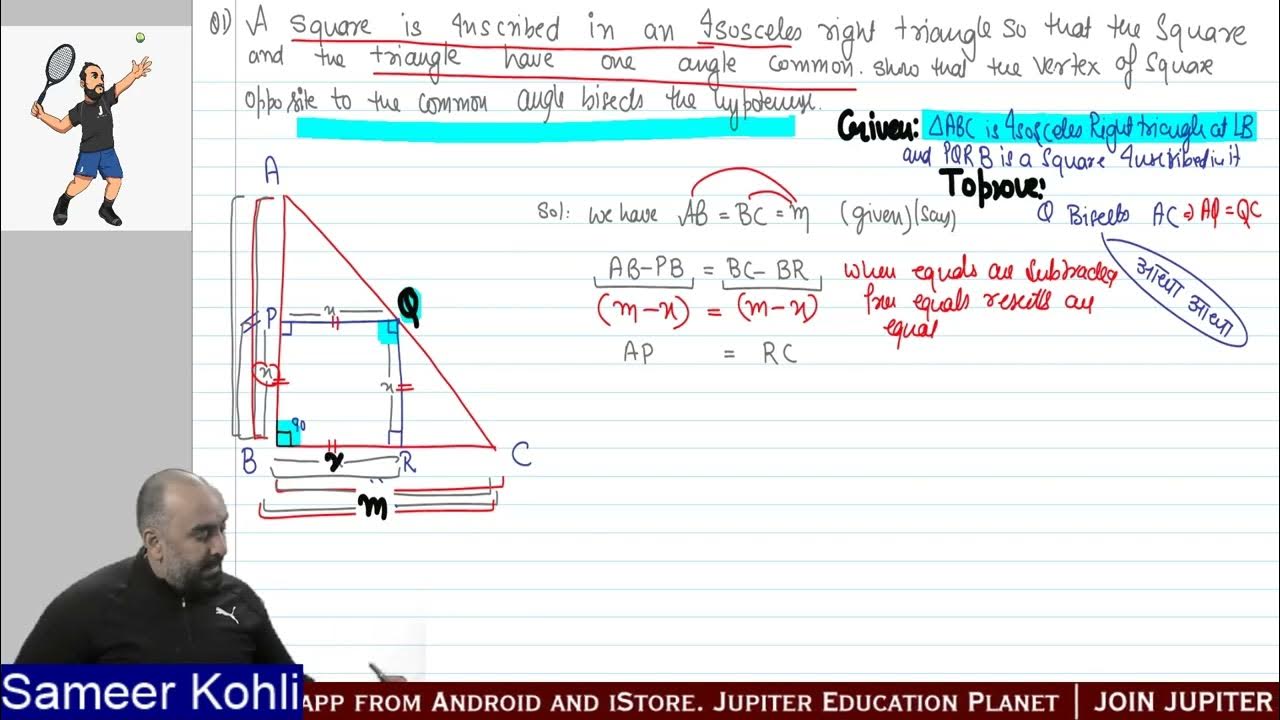 Q1) A square is Inscribed in an Isosceles right triangle so that the Square
and the triangle have one angle common. show that the vertex of Square
opposite to the common angle bisects the hypotenuse.
Given: △ABC is Isosceles Right triangle at ∠B
and PQRB is a Square Inscribed in it
To prove:
Q Bisects AC ⇒ AQ = QC
आधा आधा
Sol: We have AB = BC = m (given) (say)
AB-PB = BC-BR When equals are subtracted
(m-x) = (m-x) from equals results are
equal
AP = RC
A
P x Q
x x
90
B x R C
m
Sameer Kohli
APP FROM ANDROID AND iSTORE. JUPITER EDUCATION PLANET | JOIN JUPITER